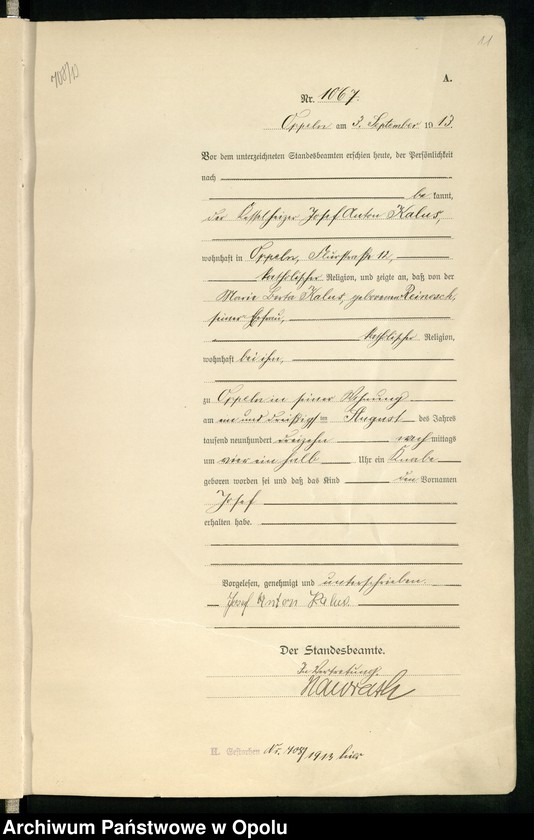 11
708/13
A.
Nr. 1067.
Oppeln am 3. September 1913.
Vor dem unterzeichneten Standesbeamten erschien heute, der Persönlichkeit
nach
be kannt,
der Kesselheizer Josef Anton Kalus,
wohnhaft in Oppeln, Flurstraße 12,
katholischer Religion, und zeigte an, daß von der
Maria Berta Kalus, geborenen Reinosch,
seiner Ehefrau,
katholischer Religion,
wohnhaft bei ihm,
zu Oppeln in seiner Wohnung
am ein und dreißigsten August des Jahres
tausend neunhundert dreizehn nach mittags
um vier ein halb Uhr ein Knabe
geboren worden sei und daß das Kind den Vornamen
Josef
erhalten habe.
Vorgelesen, genehmigt und unterschrieben.
Josef Anton Kalus.
Der Standesbeamte.
In Vertretung.
Nawrath
Nr. 708/1913 hier
Archiwum Państwowe w Opolu